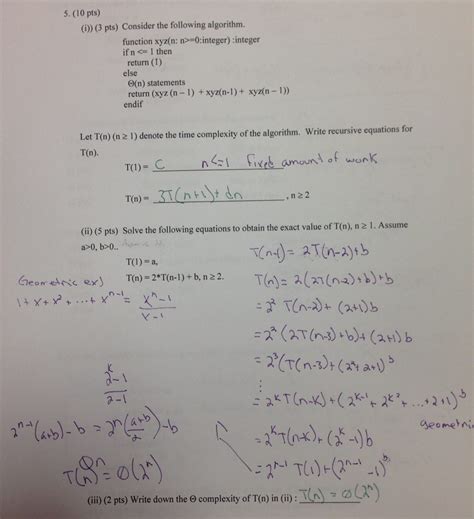 5. (10 pts)
(i)) (3 pts) Consider the following algorithm.
function xyz(n: n>=0:integer) :integer
if n <= 1 then
return (1)
else
Θ(n) statements
return (xyz (n − 1) + xyz(n-1) + xyz(n − 1))
endif
Let T(n) (n ≥ 1) denote the time complexity of the algorithm. Write recursive equations for
T(n).
T(1) = C n<=1 fixed amount of work
T(n) = 3T(n+1)+ dn , n ≥ 2
(ii) (5 pts) Solve the following equations to obtain the exact value of T(n), n ≥ 1. Assume
a>0, b>0..
T(1) = a,
T(n) = 2*T(n-1) + b, n ≥ 2.
Geometric ex)
1+x+x²+...+x^(n-1) = (x^n-1)/(x-1)
(2^k-1)/(2-1)
2^(n-1)(a+b)-b = 2^n((a+b)/2)-b
T(n) = Θ(2^n)
T(n-1) = 2T(n-2)+b
T(n) = 2(2T(n-2)+b)+b
= 2² T(n-2)+ (2+1)b
= 2² (2T(n-3)+b)+(2+1)b
= 2³(T(n-3)+(2²+2+1)b
= 2^k T(n-k)+(2^(k-1)+2^(k-2)+...+2+1)b
geometric
= 2^k T(n-k)+(2^k-1)b
= 2^(n-1) T(1)+(2^(n-1)-1)b
(iii) (2 pts) Write down the Θ complexity of T(n) in (ii) : T(n) = Θ(2^n)